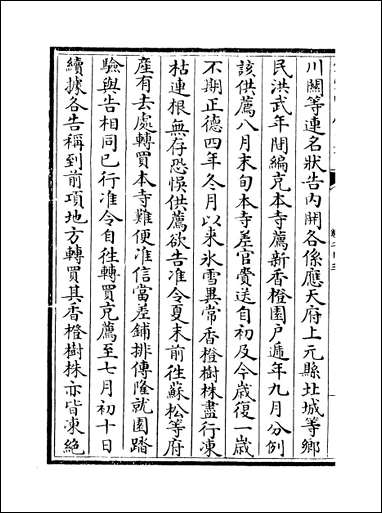 川關等連名狀告內開各係應天府上元縣北城等鄉
民洪武年間編充本寺薦新香橙園户遞年九月分例
該供薦八月末旬本寺差官賫送自初及今歲復一歲
不期正德四年冬月以来氷雪異常香橙樹株盡行凍
枯連根無存恐悞供薦欲告准令夏末前徃蘇松等府
產有去處轉買本寺難便准信當差鋪排傳隆就園踏
驗與告相同已行准令自徃轉買充薦至七月初十日
續據各告稱到前項地方轉買其香橙樹株亦皆凍絶